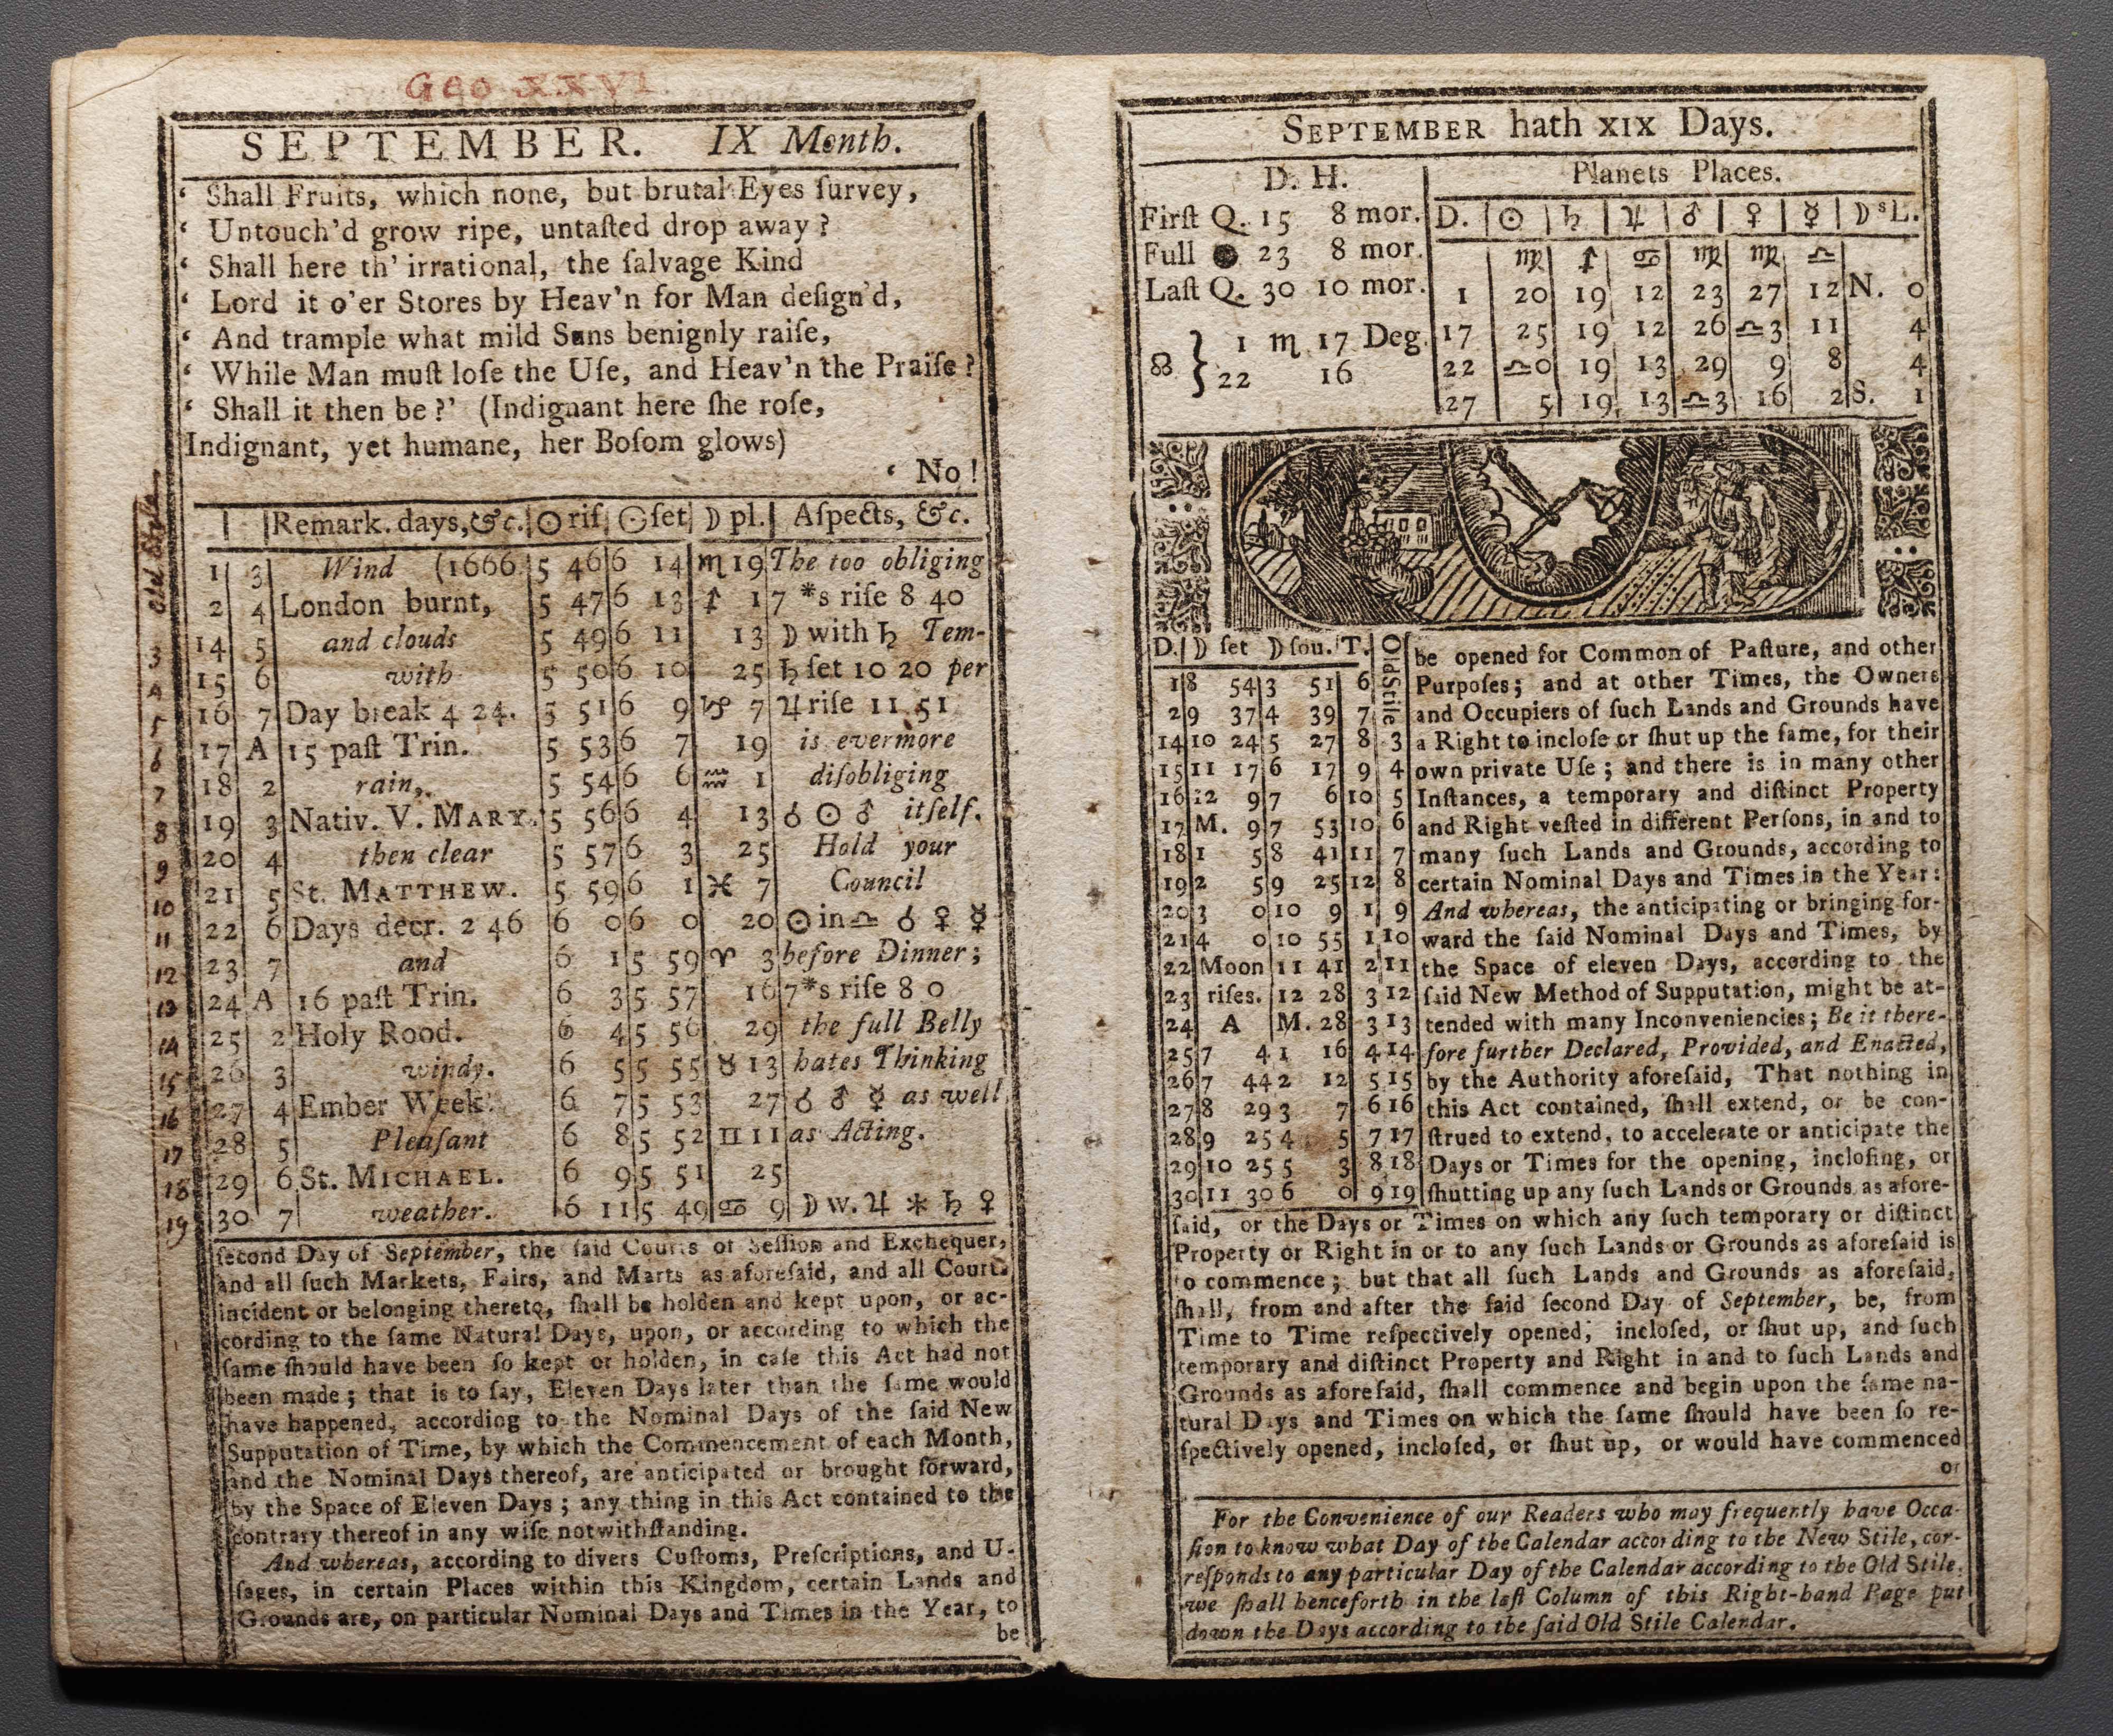 Geo XXVI
SEPTEMBER. IX Month.
‘ Shall Fruits, which none, but brutal Eyes ſurvey,
‘ Untouch'd grow ripe, untaſted drop away?
‘ Shall here th' irrational, the ſalvage Kind
‘ Lord it o'er Stores by Heav'n for Man deſign'd,
‘ And trample what mild Suns benignly raiſe,
‘ While Man muſt loſe the Uſe, and Heav'n the Praiſe?
‘ Shall it then be?’ (Indignant here ſhe roſe,
Indignant, yet humane, her Boſom glows)
‘ No!
old Style
Remark. days, &c. ☉ riſ ☉ ſet ☽ pl. Aſpects, &c.
1 3 Wind (1666 5 46 6 14 ♏ 19 The too obliging
2 4 London burnt, 5 47 6 13 ♐ 1 7 *s riſe 8 40
3 14 5 and clouds 5 49 6 11 13 ☽ with ♄ Tem-
4 15 6 with 5 50 6 10 25 ♄ ſet 10 20 per
5 16 7 Day break 4 24. 5 51 6 9 ♑ 7 ♃ riſe 11 51
6 17 A 15 paſt Trin. 5 53 6 7 19 is evermore
7 18 2 rain, 5 54 6 6 ♒ 1 diſobliging
8 19 3 Nativ. V. MARY. 5 56 6 4 13 ☌ ☉ ♂ itſelf.
9 20 4 then clear 5 57 6 3 25 Hold your
10 21 5 St. MATTHEW. 5 59 6 1 ♓ 7 Council
11 22 6 Days decr. 2 46 6 0 6 0 20 ☉ in ♎ ☌ ♀ ☿
12 23 7 and 6 1 5 59 ♈ 3 before Dinner;
13 24 A 16 paſt Trin. 6 3 5 57 16 7*s riſe 8 0
14 25 2 Holy Rood. 6 4 5 56 29 the full Belly
15 26 3 windy. 6 5 5 55 ♉ 13 hates Thinking
16 27 4 Ember Week. 6 7 5 53 27 ☌ ♂ ☿ as well
17 28 5 Pleaſant 6 8 5 52 ♊ 11 as Acting.
18 29 6 St. MICHAEL. 6 9 5 51 25
19 30 7 weather. 6 11 5 49 ♋ 9 ☽ w. ♃ ⚹ ♄ ♀
ſecond Day of September, the ſaid Courts of Seſſion and Exchequer,
and all ſuch Markets, Fairs, and Marts as aforeſaid, and all Courts
incident or belonging thereto, ſhall be holden and kept upon, or ac-
cording to the ſame Natural Days, upon, or according to which the
ſame ſhould have been ſo kept or holden, in caſe this Act had not
been made; that is to ſay, Eleven Days later than the ſame would
have happened, according to the Nominal Days of the ſaid New
Supputation of Time, by which the Commencement of each Month,
and the Nominal Days thereof, are anticipated or brought forward,
by the Space of Eleven Days; any thing in this Act contained to the
contrary thereof in any wiſe notwithſtanding.
And whereas, according to divers Cuſtoms, Preſcriptions, and U-
ſages, in certain Places within this Kingdom, certain Lands and
Grounds are, on particular Nominal Days and Times in the Year, to
be
SEPTEMBER hath XIX Days.
D. H. Planets Places.
Firſt Q. 15 8 mor. D. ☉ ♄ ♃ ♂ ♀ ☿ ☽ˢL.
Full ● 23 8 mor. ♍ ♐ ♋ ♍ ♍ ♎
Laſt Q. 30 10 mor. 1 20 19 12 23 27 12 N. 0
☊ } 1 ♏ 17 Deg. 17 25 19 12 26 ♎3 11 4
22 16 22 ♎0 19 13 29 9 8 4
27 5 19 13 ♎3 16 2 S. 1
D. ☽ ſet ☽ ſou. T. Old Stile
1 8 54 3 51 6
2 9 37 4 39 7
14 10 24 5 27 8 3
15 11 17 6 17 9 4
16 12 9 7 6 10 5
17 M. 9 7 53 10 6
18 1 5 8 41 11 7
19 2 5 9 25 12 8
20 3 0 10 9 1 9
21 4 0 10 55 1 10
22 Moon 11 41 2 11
23 riſes. 12 28 3 12
24 A M. 28 3 13
25 7 4 1 16 4 14
26 7 44 2 12 5 15
27 8 29 3 7 6 16
28 9 25 4 5 7 17
29 10 25 5 3 8 18
30 11 30 6 0 9 19
be opened for Common of Paſture, and other
Purpoſes; and at other Times, the Owners
and Occupiers of ſuch Lands and Grounds have
a Right to incloſe or ſhut up the ſame, for their
own private Uſe; and there is in many other
Inſtances, a temporary and diſtinct Property
and Right veſted in different Perſons, in and to
many ſuch Lands and Grounds, according to
certain Nominal Days and Times in the Year:
And whereas, the anticipating or bringing for-
ward the ſaid Nominal Days and Times, by
the Space of eleven Days, according to the
ſaid New Method of Supputation, might be at-
tended with many Inconveniencies; Be it there-
fore further Declared, Provided, and Enacted,
by the Authority aforeſaid, That nothing in
this Act contained, ſhall extend, or be con-
ſtrued to extend, to accelerate or anticipate the
Days or Times for the opening, incloſing, or
ſhutting up any ſuch Lands or Grounds as afore-
ſaid, or the Days or Times on which any ſuch temporary or diſtinct
Property or Right in or to any ſuch Lands or Grounds as aforeſaid is
to commence; but that all ſuch Lands and Grounds as aforeſaid,
ſhall, from and after the ſaid ſecond Day of September, be, from
Time to Time reſpectively opened, incloſed, or ſhut up, and ſuch
temporary and diſtinct Property and Right in and to ſuch Lands and
Grounds as aforeſaid, ſhall commence and begin upon the ſame na-
tural Days and Times on which the ſame ſhould have been ſo re-
ſpectively opened, incloſed, or ſhut up, or would have commenced
or
For the Convenience of our Readers who may frequently have Occa-
ſion to know what Day of the Calendar according to the New Stile, cor-
reſponds to any particular Day of the Calendar according to the Old Stile,
we ſhall henceforth in the laſt Column of this Right-hand Page put
down the Days according to the ſaid Old Stile Calendar.